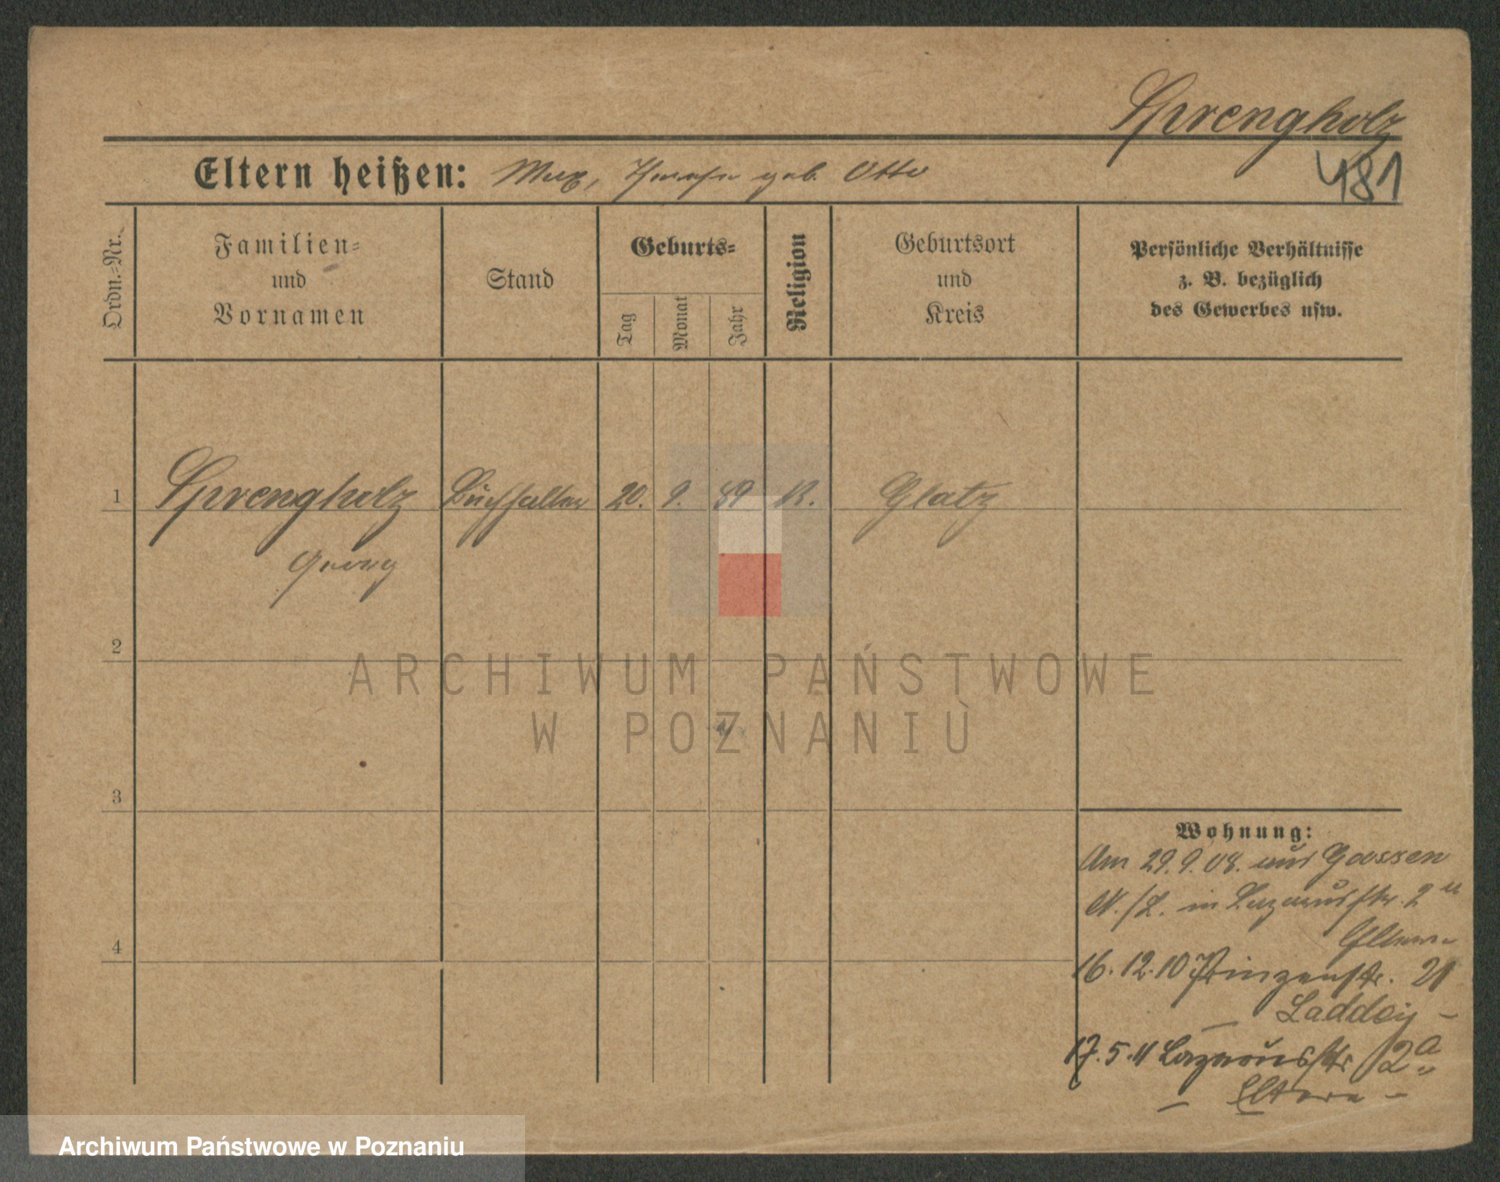 Sprengholz
481
Eltern heißen: Max, geb. Otto
Ordn.-Nr.
Familien-
und
Vornamen
Stand
Geburts-
Tag
Monat
Jahr
Religion
Geburtsort
und
Kreis
Persönliche Verhältnisse
z. B. bezüglich
des Gewerbes usw.
1 Sprengholz Buchhalter 20. 9. 89 K. Glatz
Georg
2
ARCHIWUM PAŃSTWOWE
W POZNANIU
3
4
Wohnung:
Am 29.9.08. aus Goossen
N./L. in Lazarusstr. 2
Eltern
16.12.10 Prinzenstr. 21
Laddey
17.5.11 Lazarusstr 2a
Eltern
Archiwum Państwowe w Poznaniu